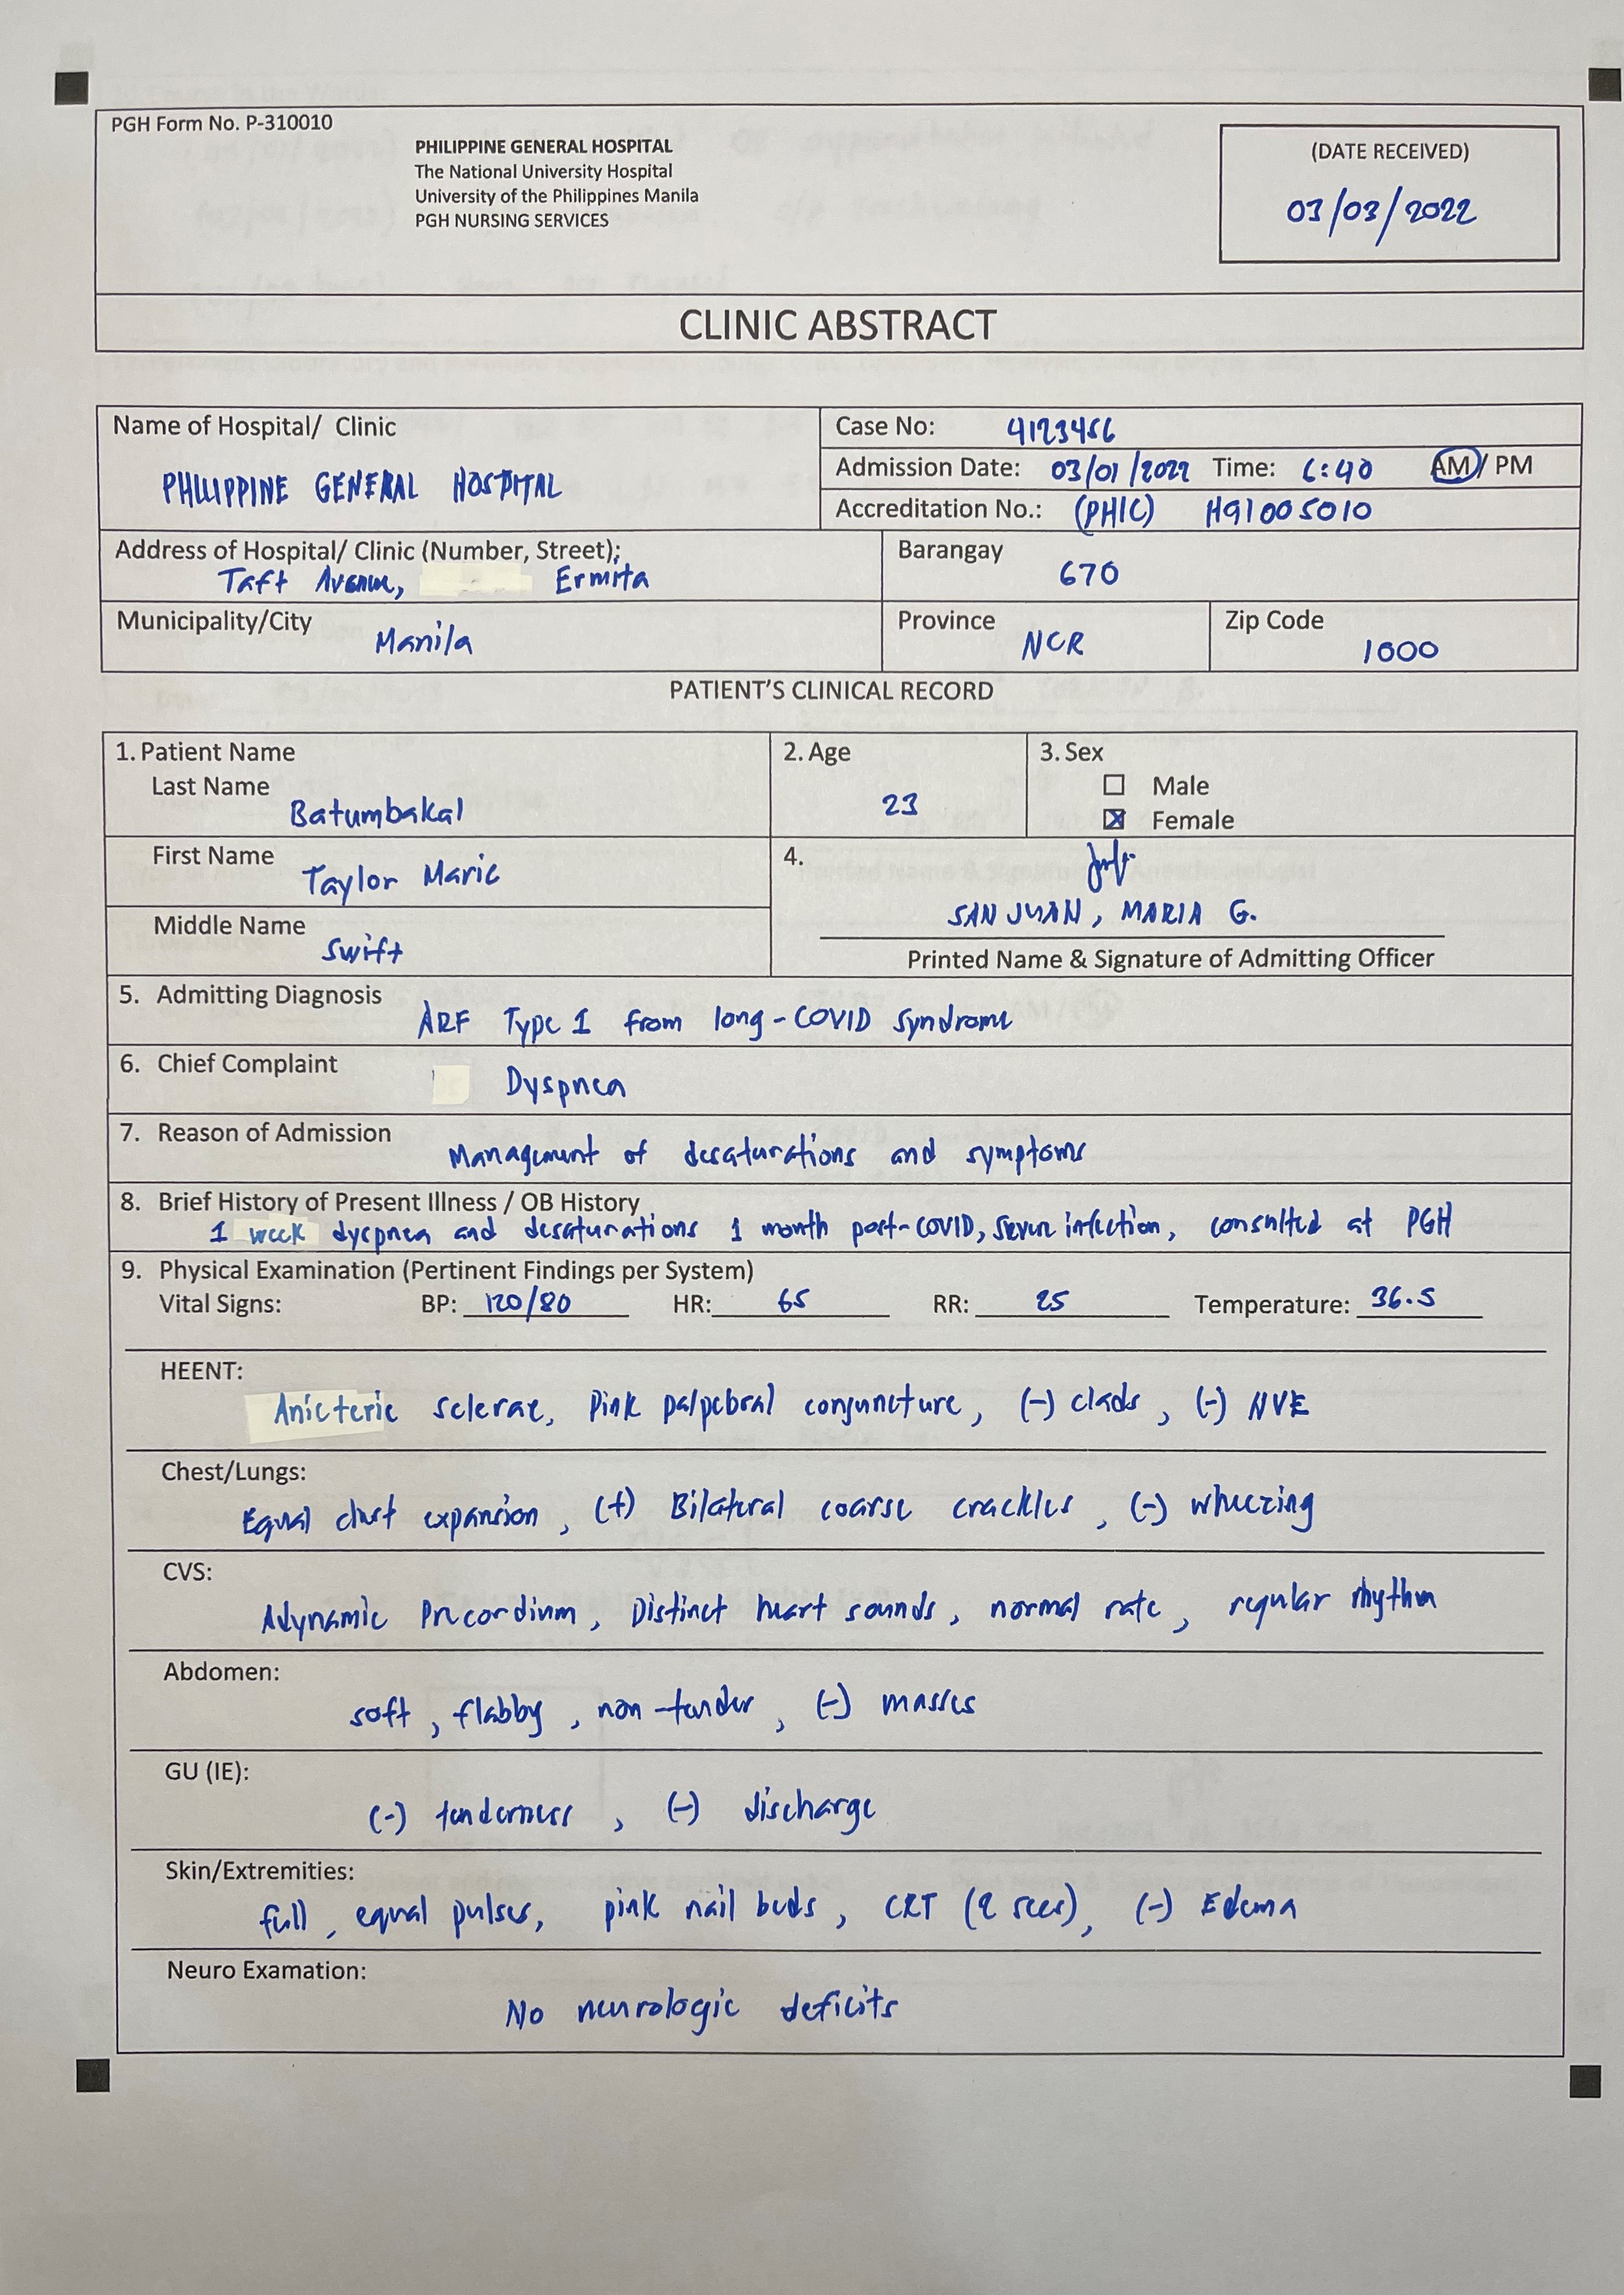 PGH Form No. P-310010
PHILIPPINE GENERAL HOSPITAL
The National University Hospital
University of the Philippines Manila
PGH NURSING SERVICES
(DATE RECEIVED)
03/03/2022
CLINIC ABSTRACT
Name of Hospital/ Clinic
PHILIPPINE GENERAL HOSPITAL
Case No: 4123456
Admission Date: 03/01/2022 Time: 6:40 AM / PM
Accreditation No.: (PHIC) H91005010
Address of Hospital/ Clinic (Number, Street):
Taft Avenue, Ermita
Barangay
670
Municipality/City
Manila
Province
NCR
Zip Code
1000
PATIENT'S CLINICAL RECORD
1. Patient Name
Last Name
Batumbakal
2. Age
23
3. Sex
Male
Female
First Name
Taylor Marie
Middle Name
Swift
4.
SAN JUAN, MARIA G.
Printed Name & Signature of Admitting Officer
5. Admitting Diagnosis
ARF Type 1 from long-COVID syndrome
6. Chief Complaint
Dyspnea
7. Reason of Admission
Management of desaturations and symptoms
8. Brief History of Present Illness / OB History
1 week dyspnea and desaturations 1 month post-COVID, severe infection, consulted at PGH
9. Physical Examination (Pertinent Findings per System)
Vital Signs: BP: 120/80 HR: 65 RR: 25 Temperature: 36.5
HEENT:
Anicteric sclerae, Pink palpebral conjuncture, (-) clads, (-) NVE
Chest/Lungs:
Equal chest expansion, (+) Bilateral coarse crackles, (-) wheezing
CVS:
Adynamic Precordium, Distinct heart sounds, normal rate, regular rhythm
Abdomen:
soft, flabby, non-tender, (-) masses
GU (IE):
(-) tenderness, (-) discharge
Skin/Extremities:
full, equal pulses, pink nail beds, CRT (2 secs), (-) Edema
Neuro Examation:
No neurologic deficits